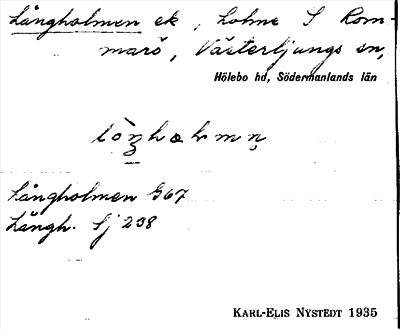 Långholmen ek, holme S Rom-
marö, Västerljungs sn,
Hölebo hd, Södermanlands län
Långholmen G67
Långh. Sj 238
KARL-ELIS NYSTEDT 1935